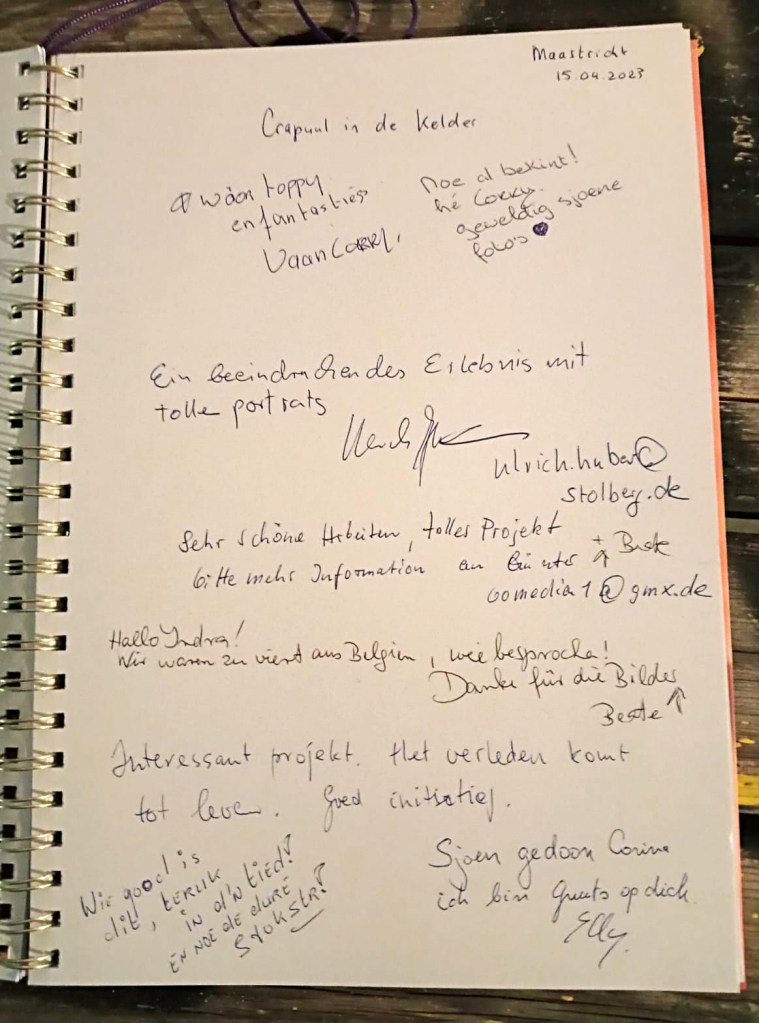 Maastricht
15.04.2023
Crapuul in de Kelder
wàon toppy
en fantasties
Vaan Corry.
Noe al bekint!
hé Corry.
geweldig sjoene
foto's
Ein beeindruckendes Erlebnis mit
tolle portrats
ulrich.huber@
stolberg.de
Sehr schöne Arbeiten, tolles Projekt
bitte mehr Information an Günter + Beate
comedia1@gmx.de
Hallo Indra!
Wir waren zu viert aus Belgien, wie besprochen!
Danke für die Bilder
Beate
Interessant projekt. Het verleden komt
tot leven. Goed initiatief.
Wie good is
dit, terlik
in d'n tied!
en noe de dure
Stokstr?
Sjoen gedoon Corina
ich bin Gruuts op dich.
Elly.